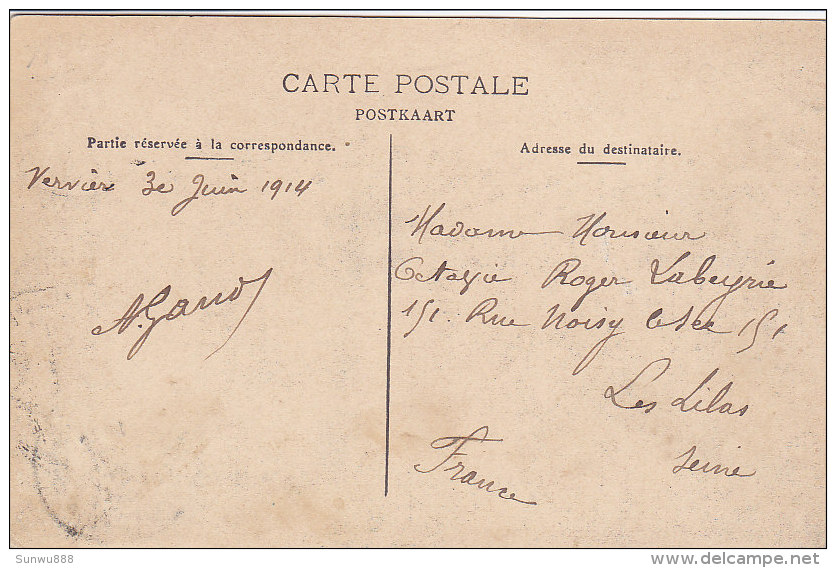 CARTE POSTALE
POSTKAART
Partie réservée à la correspondance.
Adresse du destinataire.
Vervier 3e Juin 1914
Madame Monsieur
Octavie Roger Labeyrie
151. Rue Noisy le Sec 151
Les Lilas
Seine
France
Sunwu888
delcampe.net